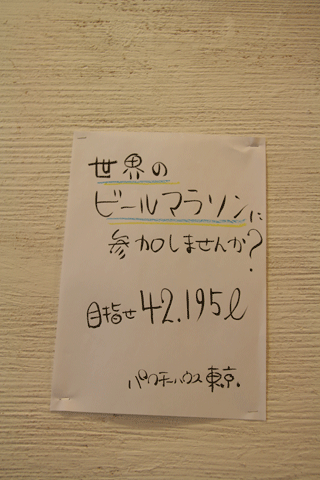 世界の
ビールマラソンに
参加しませんか?
目指せ42.195ℓ
パクチーハウス東京